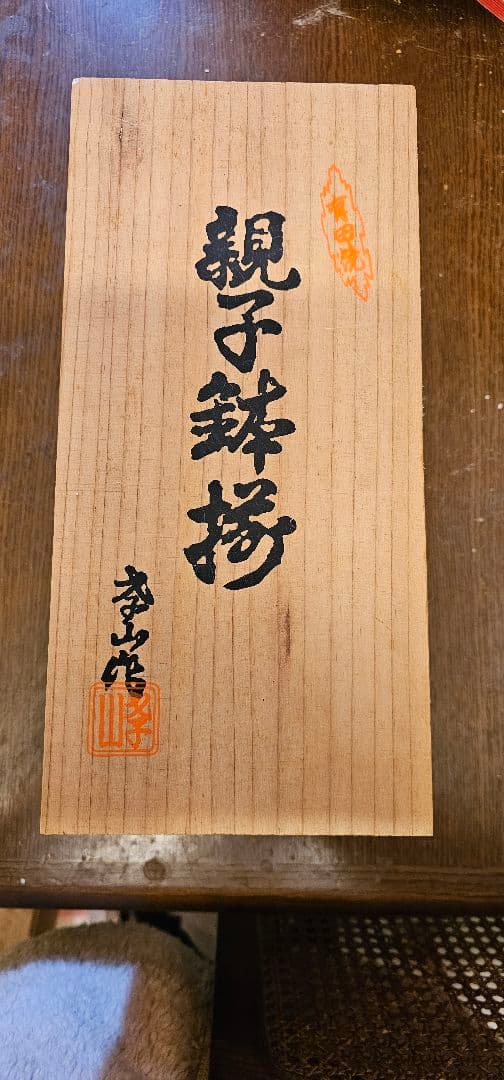 有田焼
親子鉢揃
峯山作